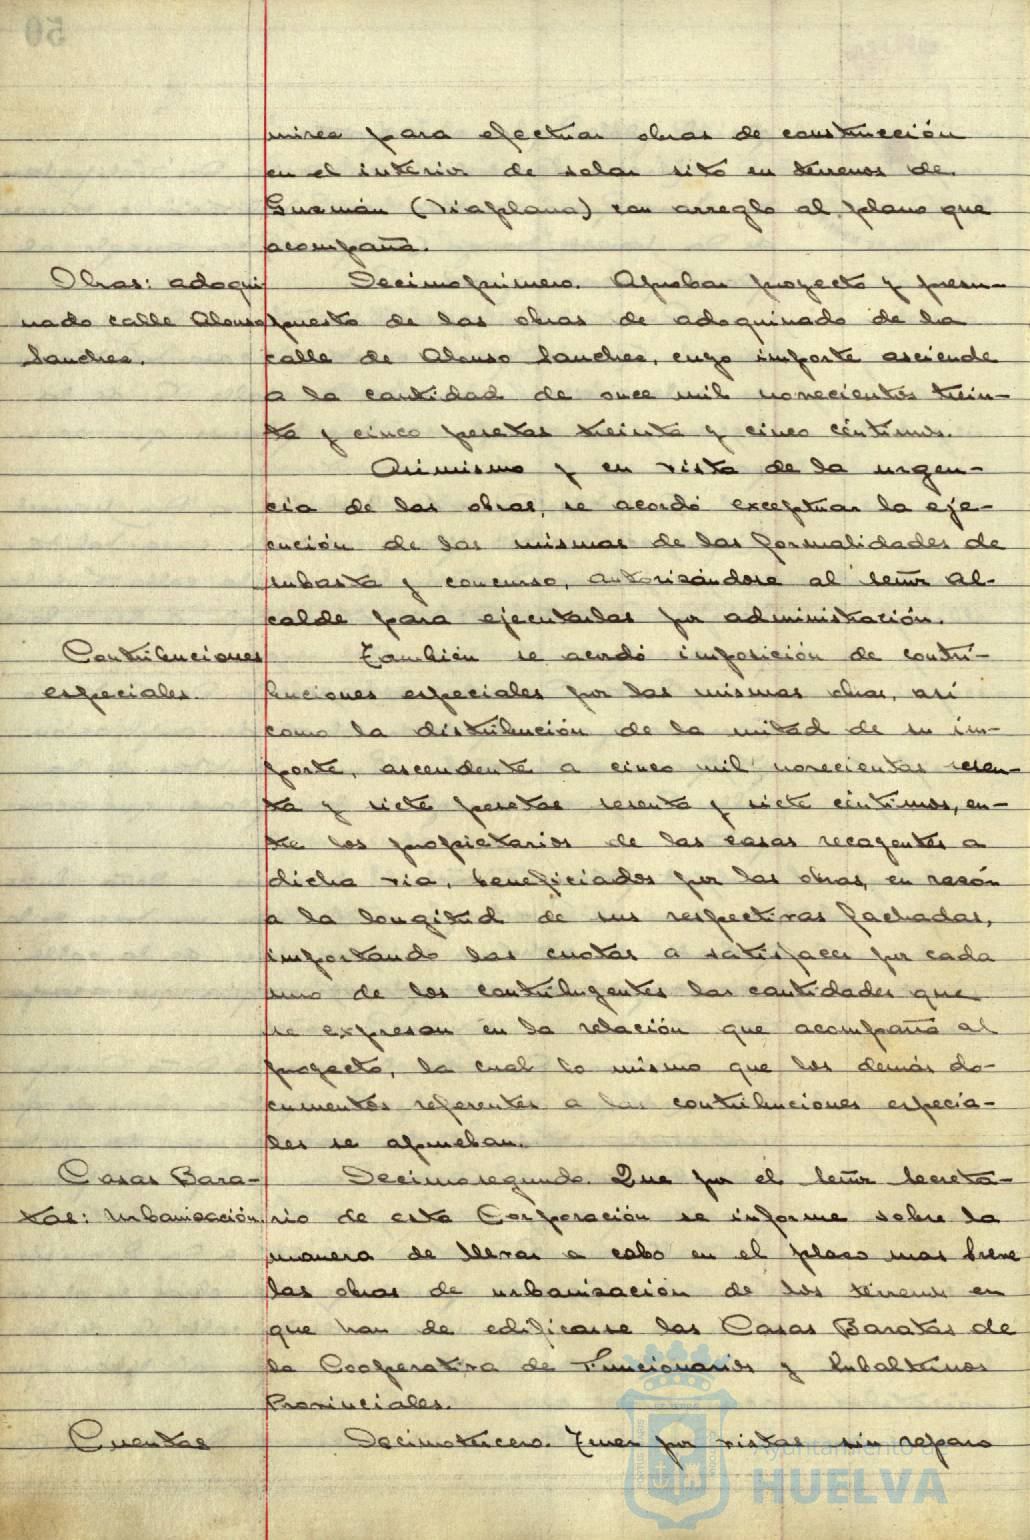 mirea para efectuar obras de construcción
en el interior de solar sito en terrenos de
Guzmán (Viaplana) con arreglo al plano que
acompaña.
Obras: adoqui
nado calle Alonso
Sanchez.
Decimoprimero. Aprobar proyecto y presu-
puesto de las obras de adoquinado de la
calle de Alonso Sanchez, cuyo importe asciende
a la cantidad de once mil novecientos trein-
ta y cinco pesetas treinta y cinco céntimos.
Asimismo y en vista de la urgen-
cia de las obras, se acordó exceptuar la eje-
cución de las mismas de las formalidades de
subasta y concurso, autorizándose al señor Al-
calde para ejecutarlas por administración.
Contribuciones
especiales.
También se acordó imposición de contri-
buciones especiales por las mismas obras, así
como la distribución de la mitad de su im-
porte, ascendente a cinco mil novecientas sesen-
ta y siete pesetas sesenta y siete céntimos, en-
tre los propietarios de las casas recayentes a
dicha via, beneficiados por las obras, en razón
a la longitud de sus respectivas fachadas,
importando las cuotas a satisfacer por cada
uno de los contribuyentes las cantidades que
se expresan en la relación que acompaña al
proyecto, la cual lo mismo que los demás do-
cumentos referentes a las contribuciones especia-
les se aprueban.
Casas Bara-
tas: Urbanización.
Decimosegundo. Que por el señor Secreta-
rio de esta Corporación se informe sobre la
manera de llevar a cabo en el plazo mas breve
las obras de urbanización de los terrenos en
que han de edificarse las Casas Baratas de
la Cooperativa de Funcionarios y Subalternos
Provinciales.
Cuentas
Decimotercero. Tener por vistas sin reparo
Ayuntamiento de
HUELVA
50